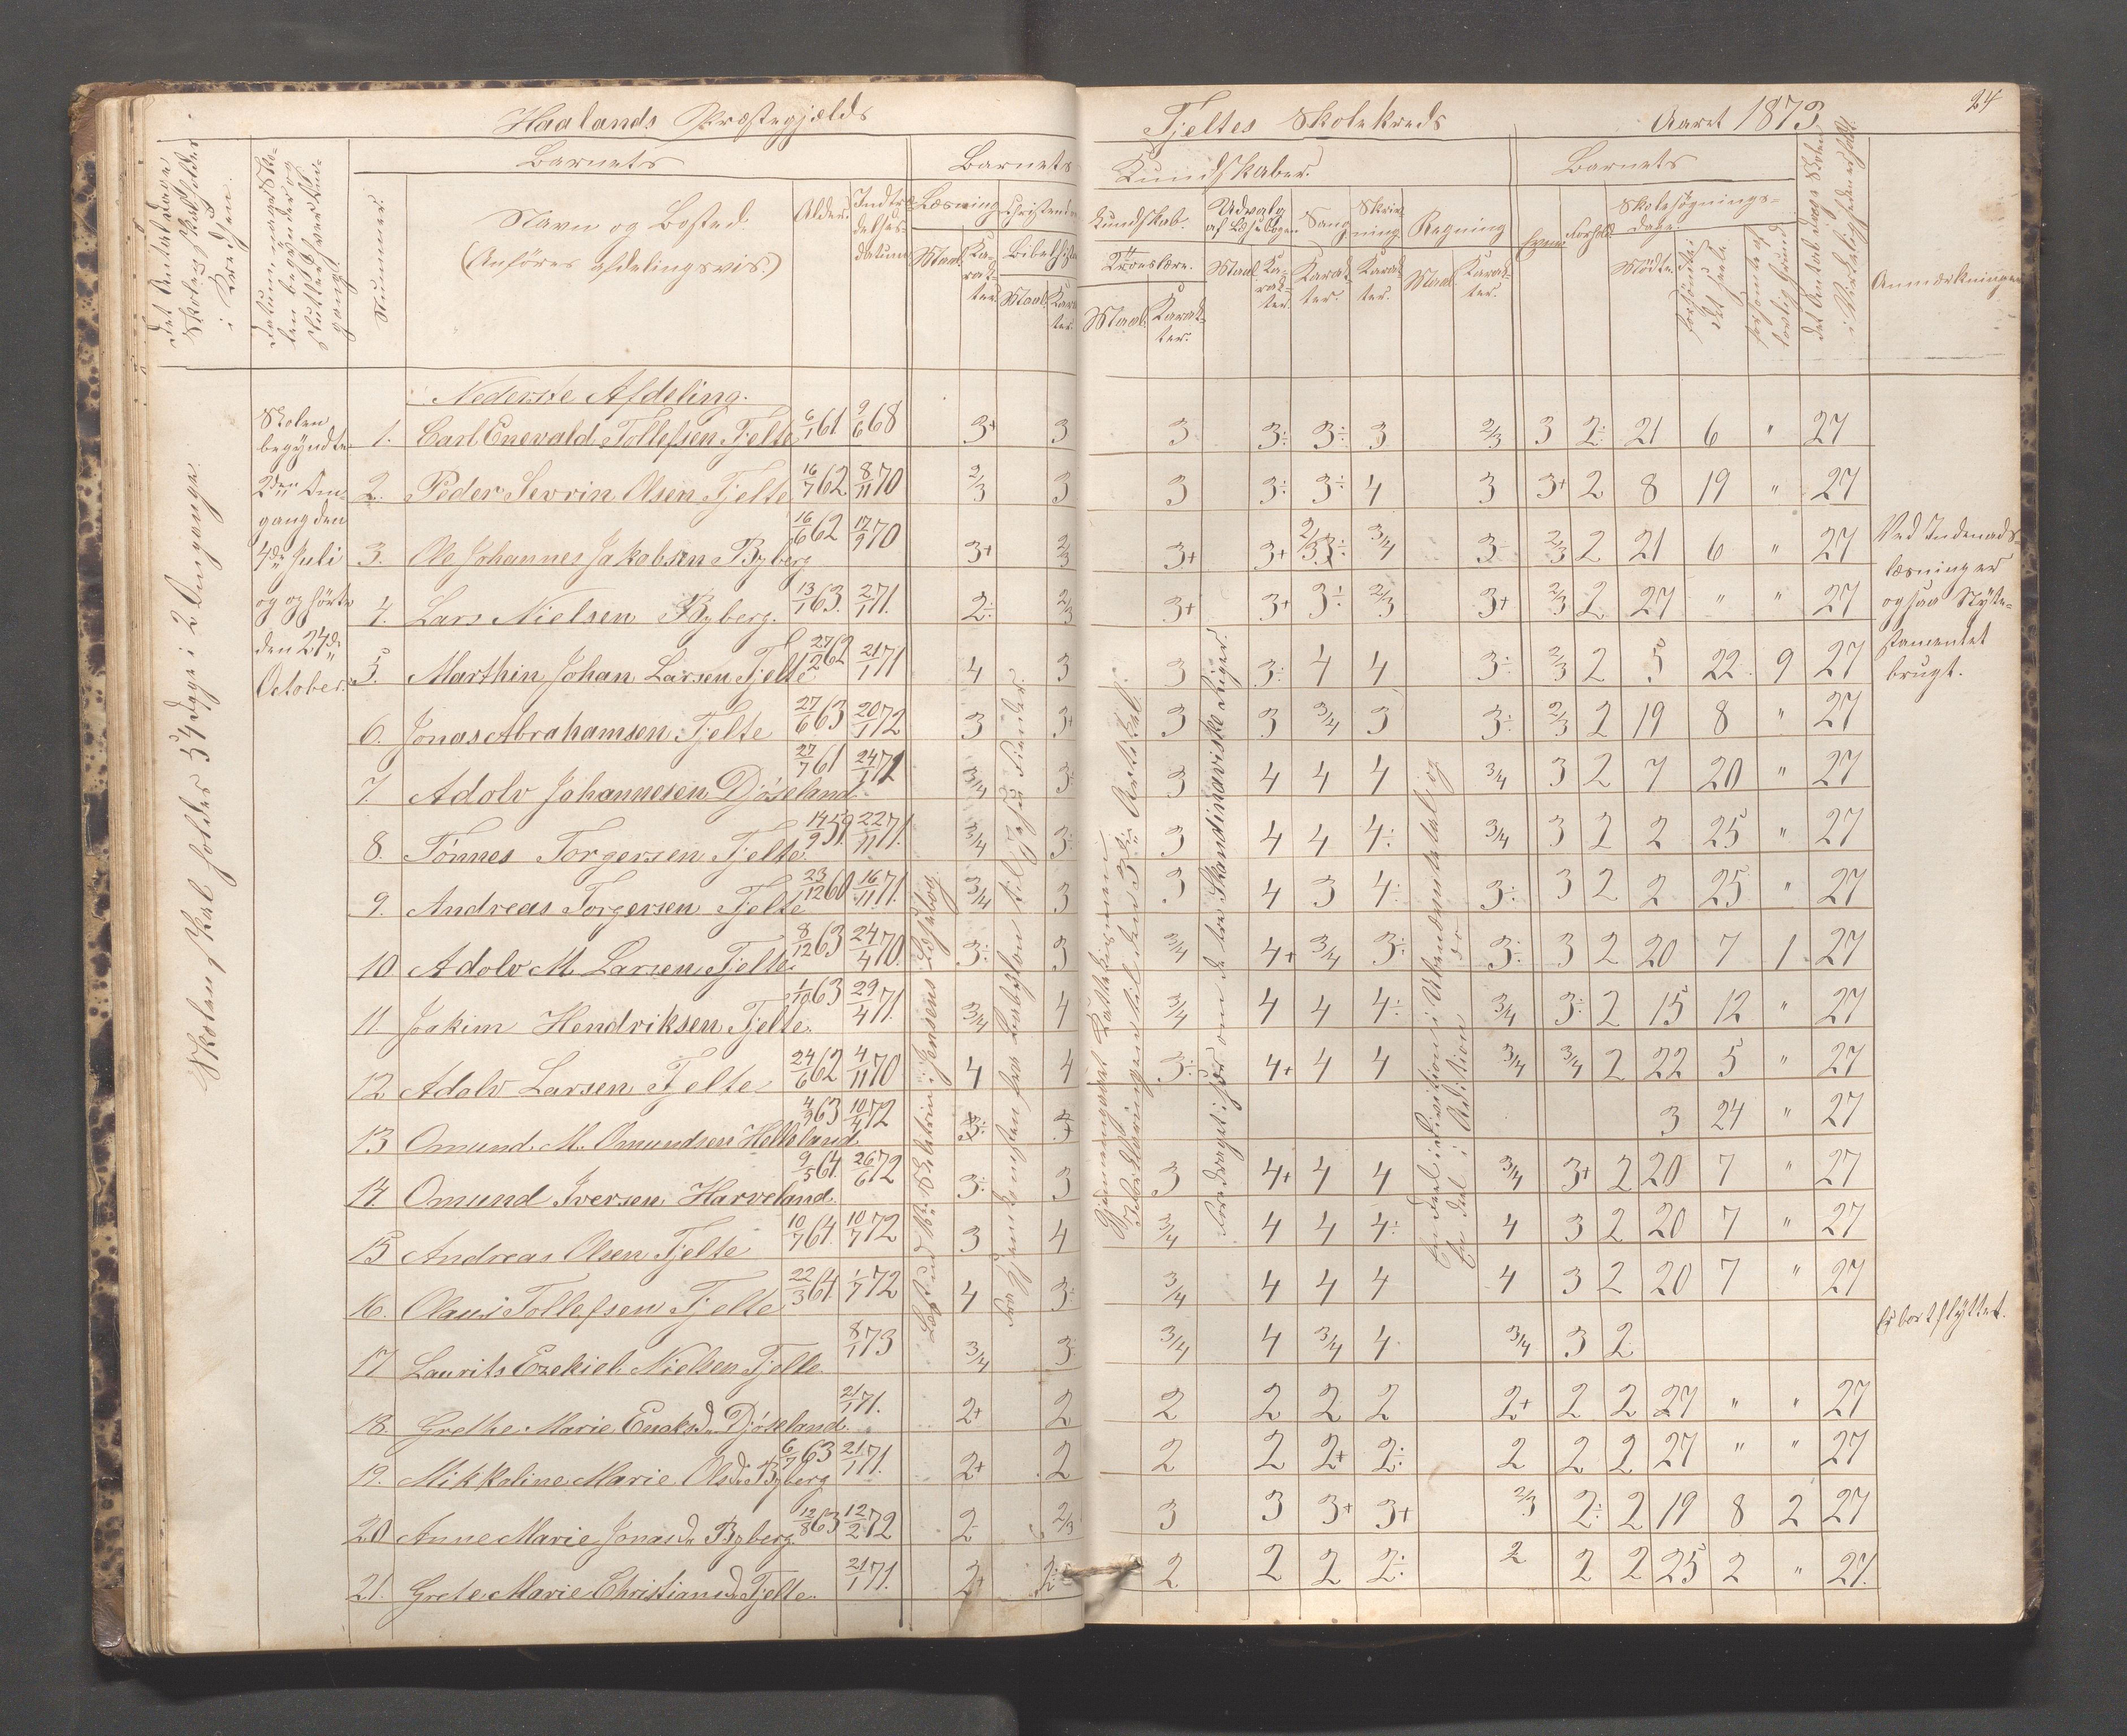 Haalands Præstegjelds
Tjeltes Skolekreds
Aaret 1873
24
Det Antal Dage Skolen skal holdes i Kredsen.
Datum naar Skolen begynder og slutter hver Omgang.
Nummer.
Barnets
Navn og Bosted.
(Anføres afdelingsvis.)
Alder.
Indtrædelses-datum
Barnets
Kundskaber.
Læsning
Maal.
Karakter.
Christendoms
Kundskab.
Bibelhistorie
Maal.
Karakter.
Troeslære.
Maal.
Karakter.
Udvalg af Læsebogen
Maal.
Karakter.
Sang
Karakter.
Skrivning.
Karakter.
Regning
Maal.
Karakter.
Barnets
Evner.
Forhold.
Skolesøgnings-Dage.
Mødte.
forsømte i det hele
forsømte af lovlig Grund
Det Antal Dage Skolen i Virkeligheden er holdt.
Anmærkninger
Skolen skal holdes 54 Dage i 2 Omgange.
Skolen
begyndte
2den Om-
gang den
4de Juli
og ophørte
den 24de
October.
Nederste Afdeling.
1. Carl Enevald Tollefsen Tjelte 6/1 61 9/6 68 3+ 3 3 3÷ 3÷ 3 2/3 3 2÷ 21 6 " 27
2. Peder Sevrin Olsen Tjelte 16/7 62 8/11 70 2/3 3 3 3÷ 3÷ 4 3 3+ 2 8 19 " 27
3. Ole Johannes Jakobsen Byberg 16/6 62 17/9 70 3+ 2/3 3+ 3+ 3/4 3 2/3 2 21 6 " 27
4. Lars Nielsen Byberg. 13/1 63. 2/1 71. 2÷ 2/3 3+ 3+ 3÷ 2/3 3+ 2/3 2 27 " " 27
5. Marthin Johan Larsen Tjelte 27/12 62 21/1 71 4 3 3 3÷ 4 4 3÷ 2/3 2 5 22 9 27
6. Jonas Abrahamsen Tjelte 27/6 63 20/1 72 3 3+ 3 3 3/4 3 3÷ 2/3 2 19 8 " 27
7. Adolv Johannesen Djøseland 27/7 61 24/1 72 3/4 3÷ 3 4 4 4 3/4 3 2 7 20 " 27
8. Tønnes Torgersen Tjelte. 14/9 59. 22/11 71. 3/4 3÷ 3 4 4 4÷ 3/4 3 2 2 25 " 27
9. Andreas Torgersen Tjelte 23/12 60 16/11 71. 3/4 3 3 4 3 4÷ 3÷ 3 2 2 25 " 27
10 Adolv M. Larsen Tjelte 8/12 63 24/4 70. 3÷ 3 3/4 4+ 3/4 3÷ 3÷ 3 2 20 7 1 27
11. Joakim Hendriksen Tjelte. 1/10 63 29/4 71. 3/4 4 3/4 4 4 4÷ 3/4 3÷ 2 15 12 " 27
12 Adolv Larsen Tjelte 24/6 62 4/11 70 4 4 3÷ 4+ 4 4 3/4 3/4 2 22 5 " 27
13 Omund M. Omundsen Helleland 4/3 63 10/4 72 3 24 " 27
14. Omund Iversen Harveland. 9/5 64. 26/6 72 3÷ 3 3 4+ 4 4 3/4 3+ 2 20 7 " 27
15 Andreas Olsen Tjelte 10/7 64. 10/7 72 3 4 3/4 4 4 4÷ 4 3 2 20 7 " 27
16. Olaus Tollefsen Tjelte 22/3 64. 1/7 72 4 3÷ 3/4 4 4 4 4 3 2 20 7 " 27
17 Laurits Ezekiel Nielsen Tjelte. 8/1 73 3/4 3 3/4 4 3/4 4. 3/4 3 2
18. Grethe Marie Enoksd. Djøseland. 21/1 71. 2+ 2 2 2 2 2 2+ 2 2 27 " " 27
19. Mikkaline Marie Olsd. Byberg 6/7 63 21/1 71. 2+ 2 2 2 2+ 2÷ 2 2 2 27 " " 27
20 Anne Marie Jonasd. Byberg. 12/8 63 12/2 72 2 2/3 3 3 3+ 3+ 2/3 2÷ 2 19 8 2 27
21. Grete Marie Christiansd. Tjelte. 21/1 71. 2+ 2÷ 2 2 2 2÷ 2 2 2 25 2 " 27.
Jensens Læsebog.
fra Babylon til Jesu Fiender.
Gjennemgaaet Kathekismens
til den 3die Artikel.
Foredraget om de tre Skandinaviske Riger.
En Deel i Division i Ubenævnte Tal og
En Deel i Addition do
Ved Indenads-
læsning er
ogsaa Nyte-
stamentet
brugt.
Er bortflyttet.